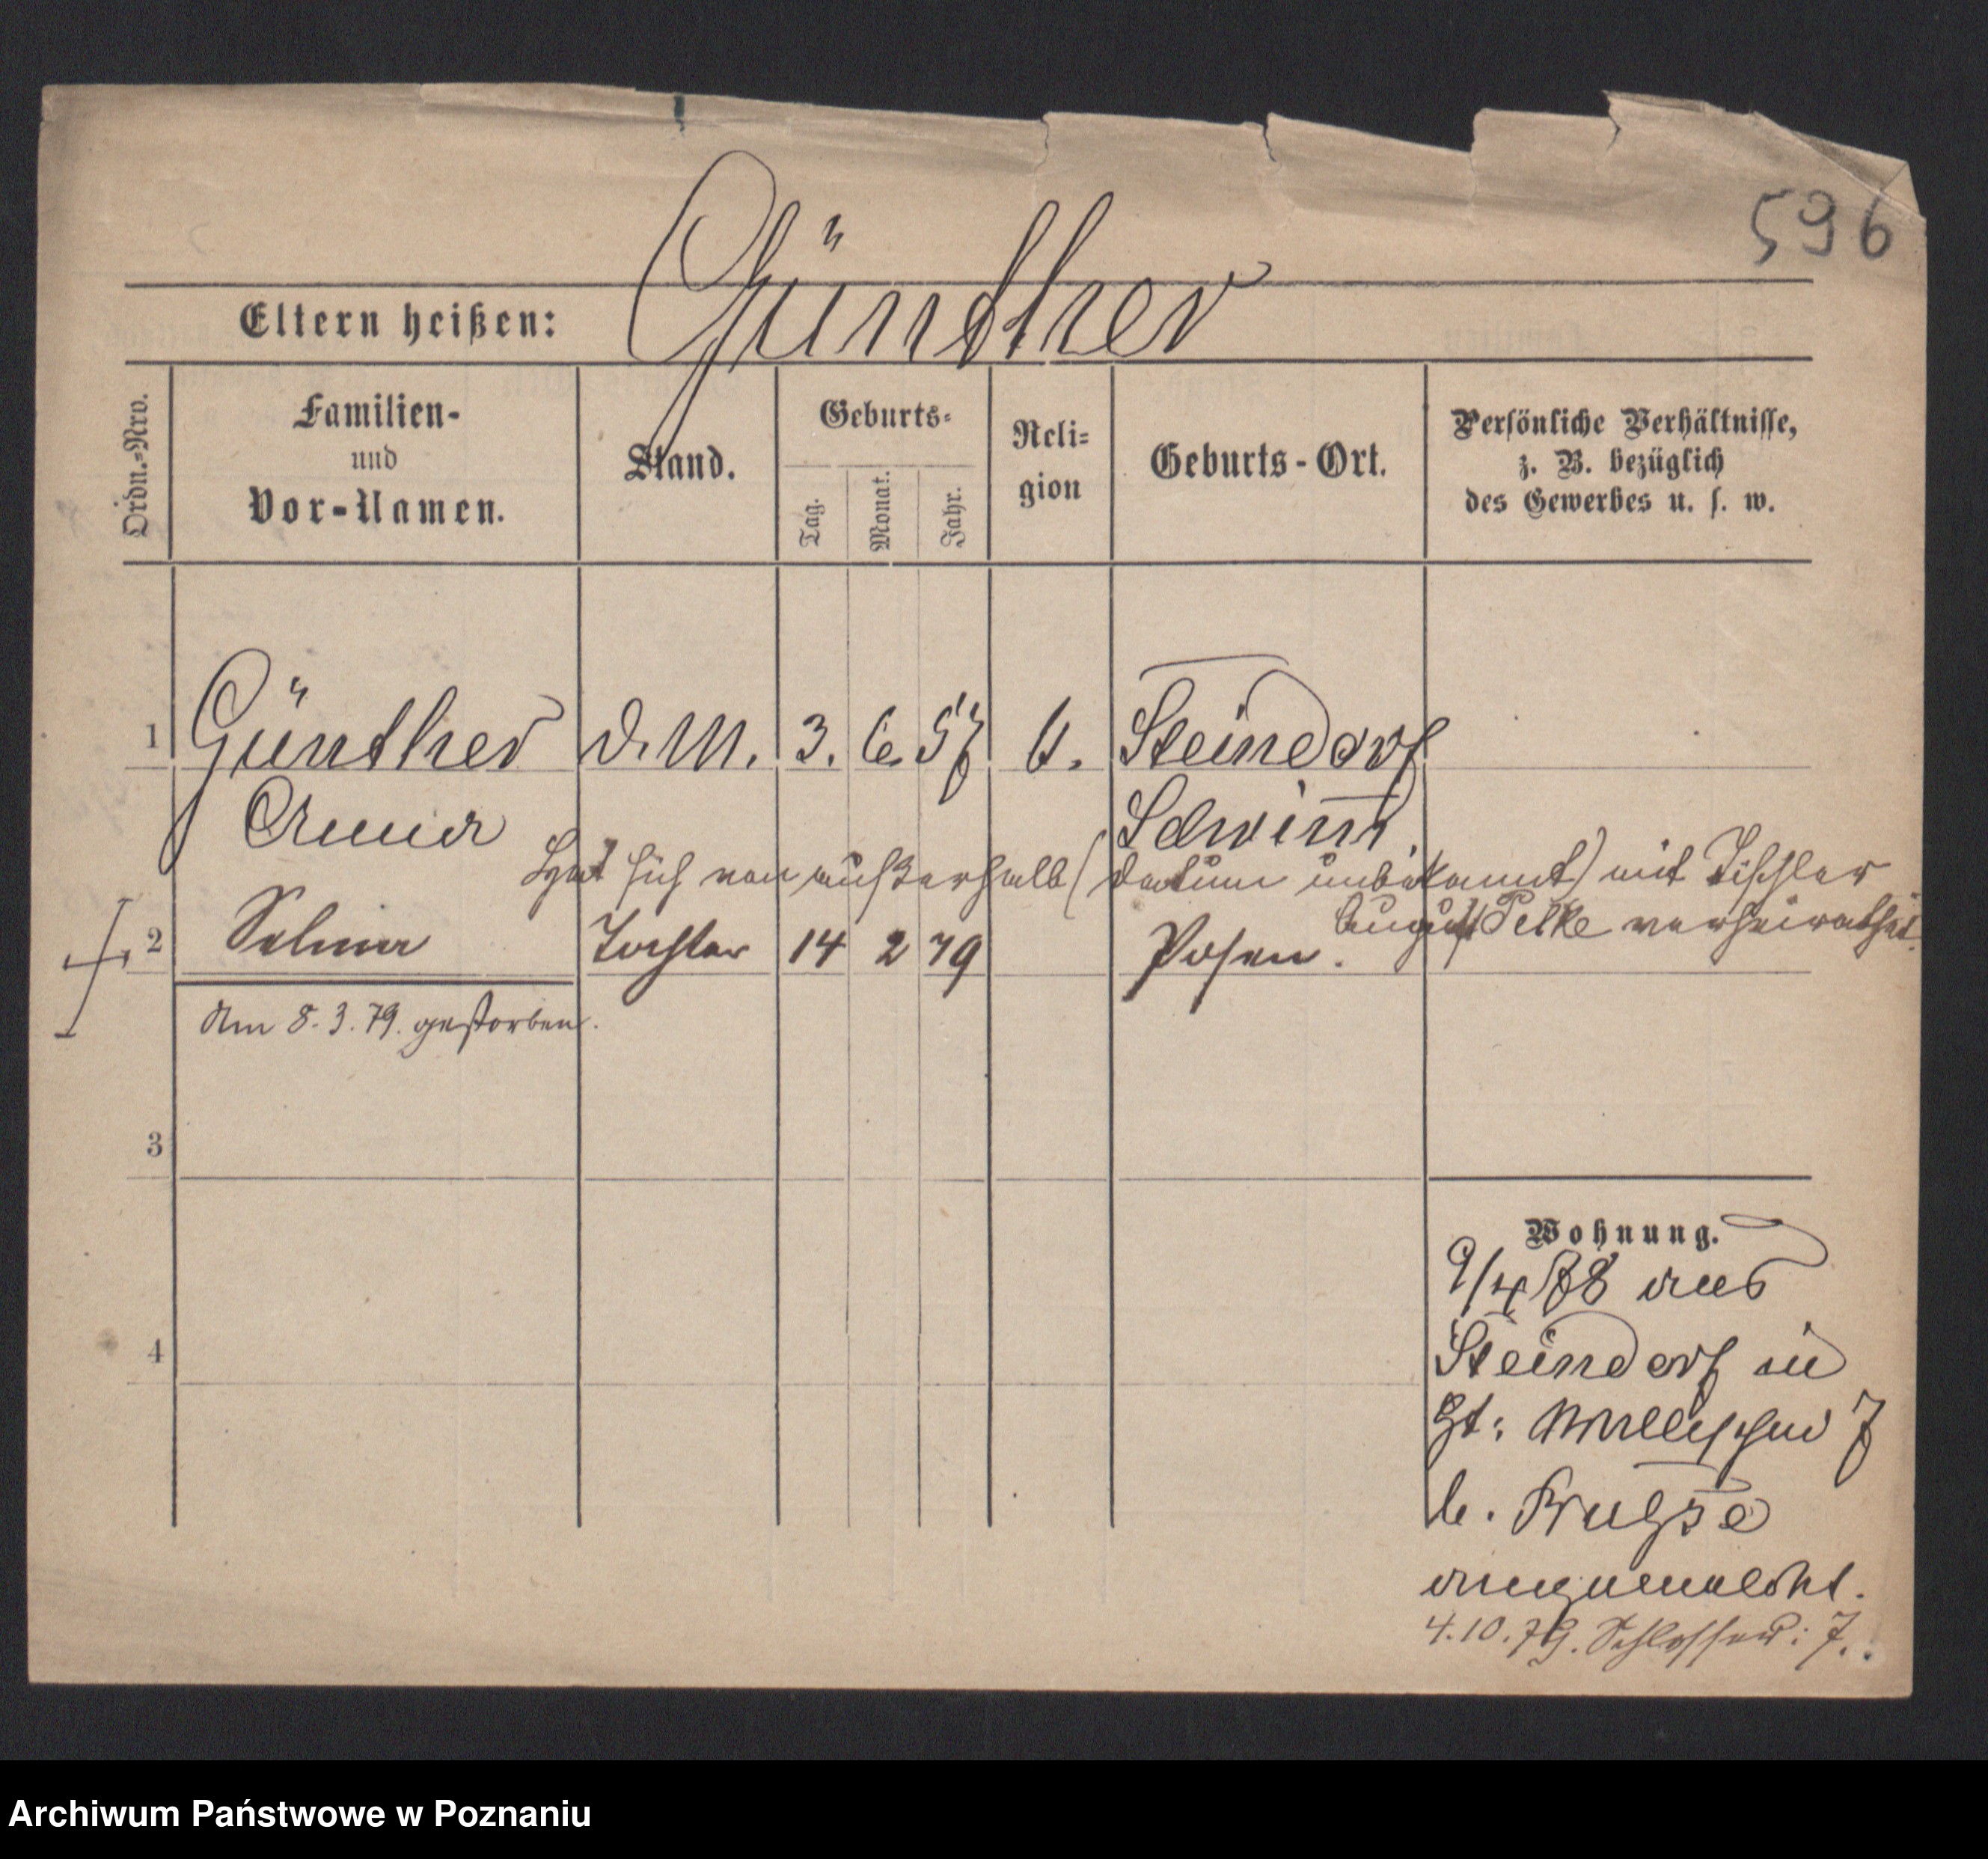 596
Günther
Eltern heißen:
Ordn.-Nro.
Familien-
und
Vor-Namen.
Stand.
Geburts-
Tag.
Monat.
Jahr.
Reli-
gion
Geburts-Ort.
Persönliche Verhältnisse,
z. B. bezüglich
des Gewerbes u. s. w.
1 Günther d. M. 3. 6. 57 Steindorf
Anna Schrim
Hat sich von außerhalb (Datum unbekannt) mit Tischler
August Pelke verheirathet.
2 Selma Tochter 14 2 79 Posen.
Am 8. 3. 79. gestorben.
3
Wohnung.
9/4 78 aus
4
Steindorf in
7
b.
angemeldet.
4.10.79. Schlosser: 7.
Archiwum Państwowe w Poznaniu